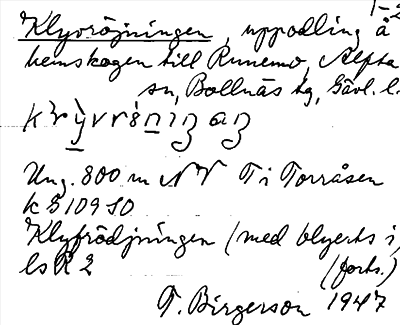 1-2
Klyvröjningen, uppodling å
hemskogen till Runemo, Alfta
sn, Bollnäs tg, Gävl. l.
Ung. 800 m NV T i Torråsen
k G 109 SO
Klyfrödjningen (med blyerts i)
ls R 2 (forts.)
T. Birgerson 1947